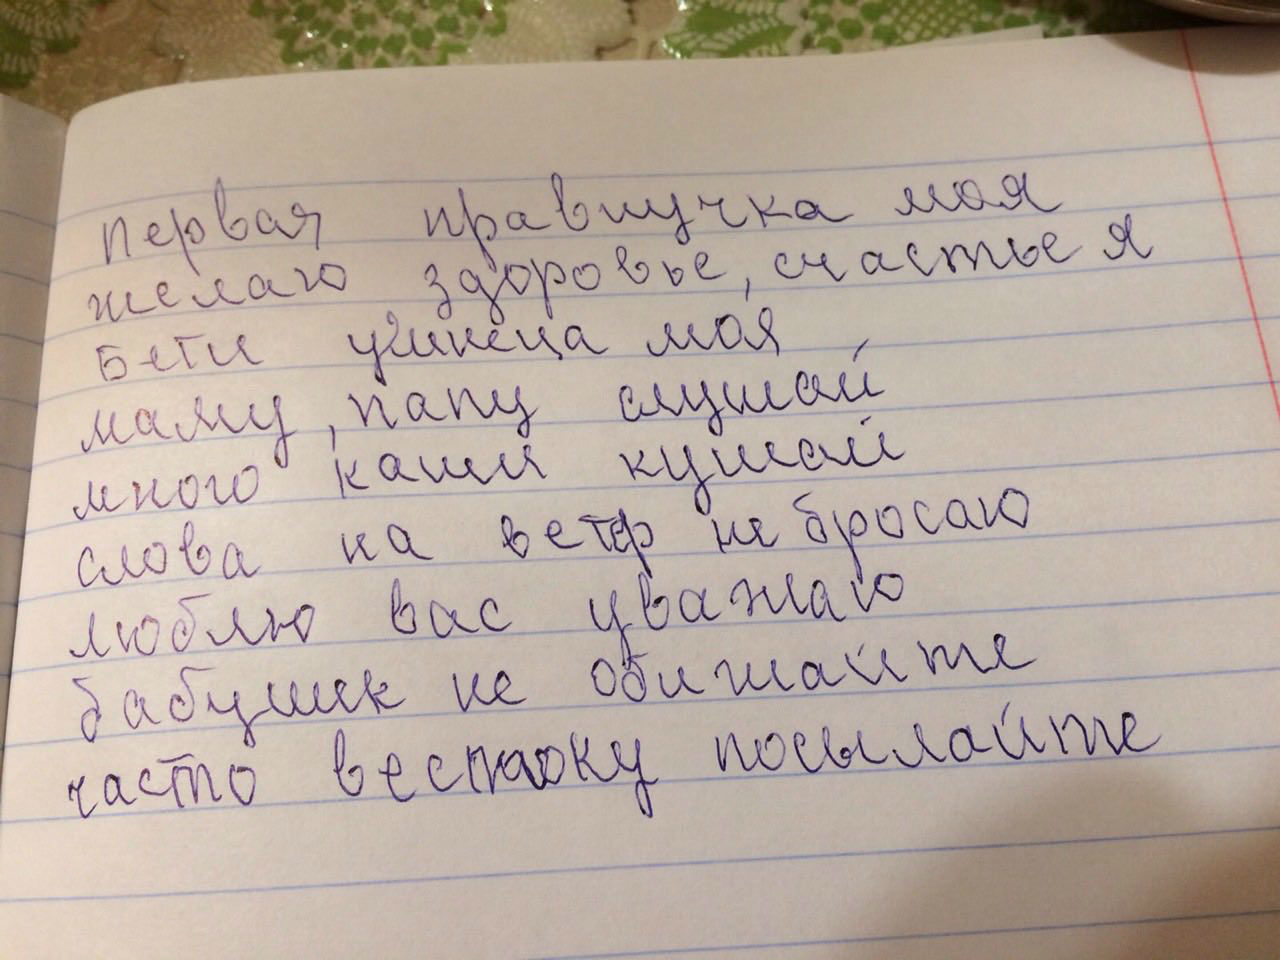 Первая правнучка моя
желаю здоровье, счастье я
Бети умнеца моя
маму, папу слушай
много каши кушай
слова на ветер не бросаю
люблю вас уважаю
бабушек не обижайте
часто весточку посылайте